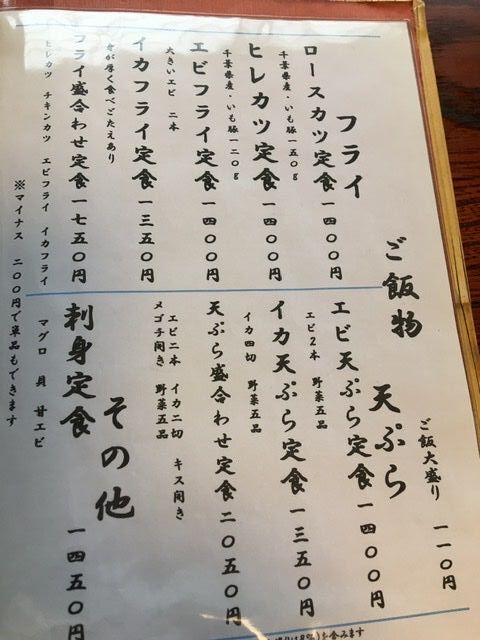 ご飯物
ご飯大盛り 一一〇円
フライ
ロースカツ定食 一四〇〇円
千葉県産・いも豚一五〇g
ヒレカツ定食 一四〇〇円
千葉県産・いも豚一二〇g
エビフライ定食 一四〇〇円
大きいエビ 二本
イカフライ定食 一三五〇円
身が厚く食べごたえあり
フライ盛合わせ定食 一七五〇円
ヒレカツ チキンカツ エビフライ イカフライ
天ぷら
エビ天ぷら定食 一四〇〇円
エビ2本 野菜五品
イカ天ぷら定食 一三五〇円
イカ四切 野菜五品
天ぷら盛合わせ定食 二〇五〇円
エビ二本 イカ二切 キス開き
メゴチ開き 野菜五品
その他
刺身定食 一四五〇円
マグロ 貝 甘エビ
※マイナス 二〇〇円で単品もできます
8%)を含みます